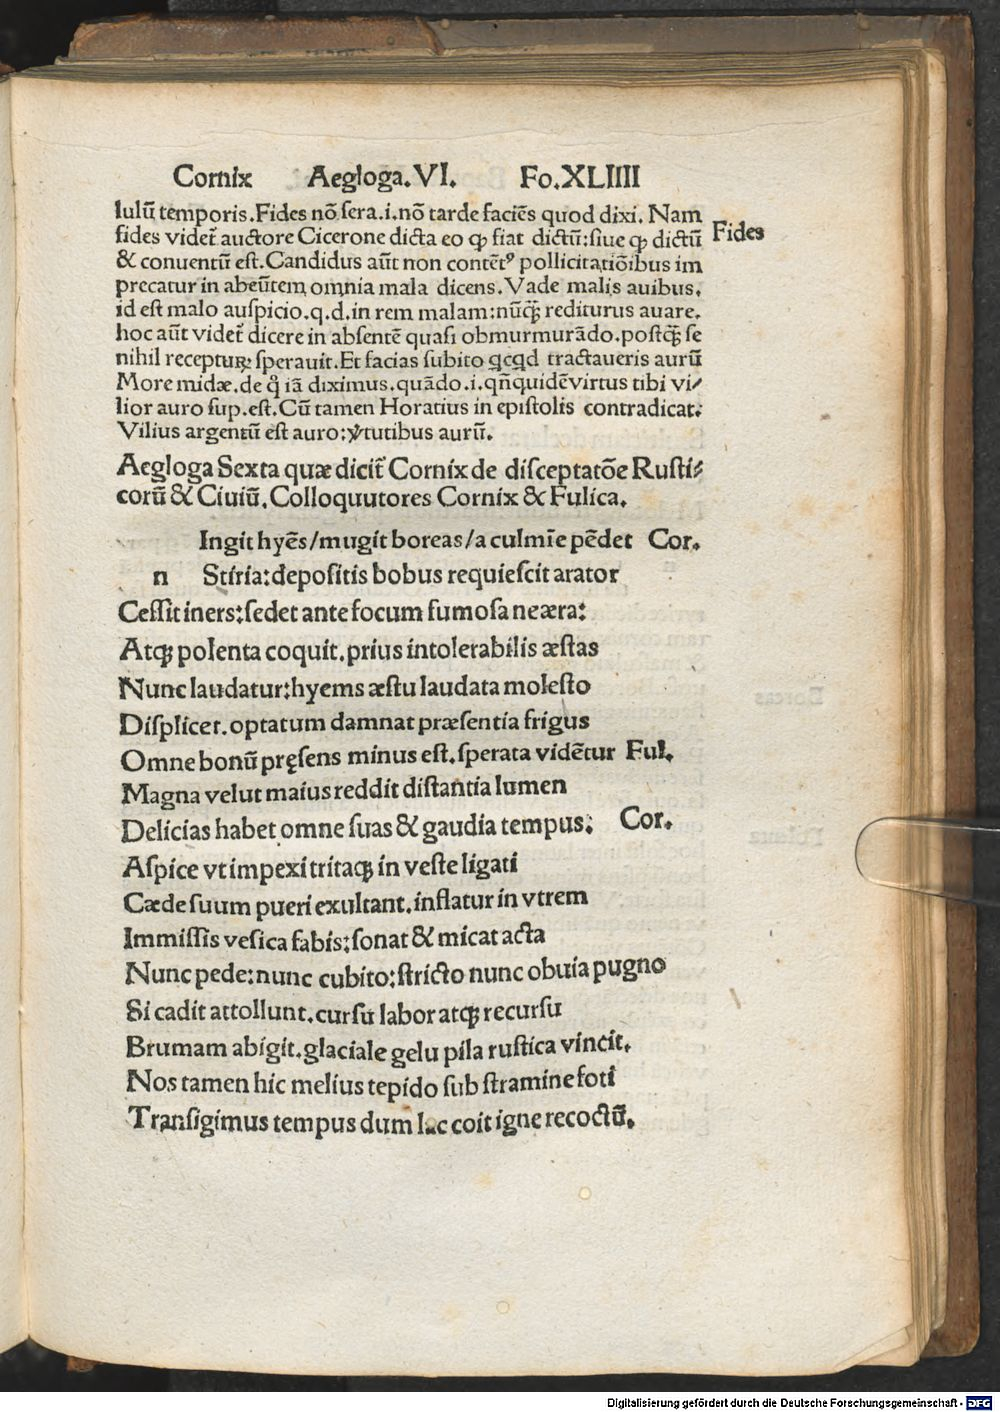 Cornix Aegloga.VI. Fo.XLIIII
lulū temporis.Fides nō sera.i.nō tarde faciēs quod dixi. Nam
fides videt᷑ auctore Cicerone dicta eo ꝙ fiat dictū:siue ꝙ dictū Fides
& conuentū est.Candidus aūt non contētꝰ pollicitatiōibus im
precatur in abeūtem omnia mala dicens.Vade malis auibus.
id est malo auspicio.q.d.in rem malam:nūꝙ̄ rediturus auare.
hoc aūt videt᷑ dicere in absentē quasi obmurmurādo.postꝙ̄ se
nihil recepturꝝ sperauit.Et facias subito qcqd tractaueris aurū
More midæ.de q̄ iā diximus.quādo.i.qn̄quidēvirtus tibi vi/
lior auro sup.est.Cū tamen Horatius in epistolis contradicat.
Vilius argentū est auro:v̓tutibus aurū.
Aegloga Sexta quæ dicit᷑ Cornix de disceptatōe Rusti/
corū & Ciuiū.Colloquutores Cornix & Fulica.
Ingit hyēs/mugit boreas/a culmīe pēdet Cor.
n Stiria:depositis bobus requiescit arator
Cessit iners:sedet ante focum fumosa neæra:
Atqꝫ polenta coquit.prius intolerabilis æstas
Nunc laudatur:hyems æstu laudata molesto
Displicet.optatum damnat præsentia frigus
Omne bonū pręsens minus est.sperata vidētur Ful.
Magna velut maius reddit distantia lumen
Delicias habet omne suas & gaudia tempus: Cor.
Aspice vt impexi tritaqꝫ in veste ligati
Cæde suum pueri exultant.inflatur in vtrem
Immissis vesica fabis:sonat & micat acta
Nunc pede:nunc cubito:stricto nunc obuia pugno
Si cadit attollunt.cursu labor atqꝫ recursu
Brumam abigit.glaciale gelu pila rustica vincit.
Nos tamen hic melius tepido sub stramine foti
Transigimus tempus dum lac coit igne recoctū.
Digitalisierung gefördert durch die Deutsche Forschungsgemeinschaft - DFG